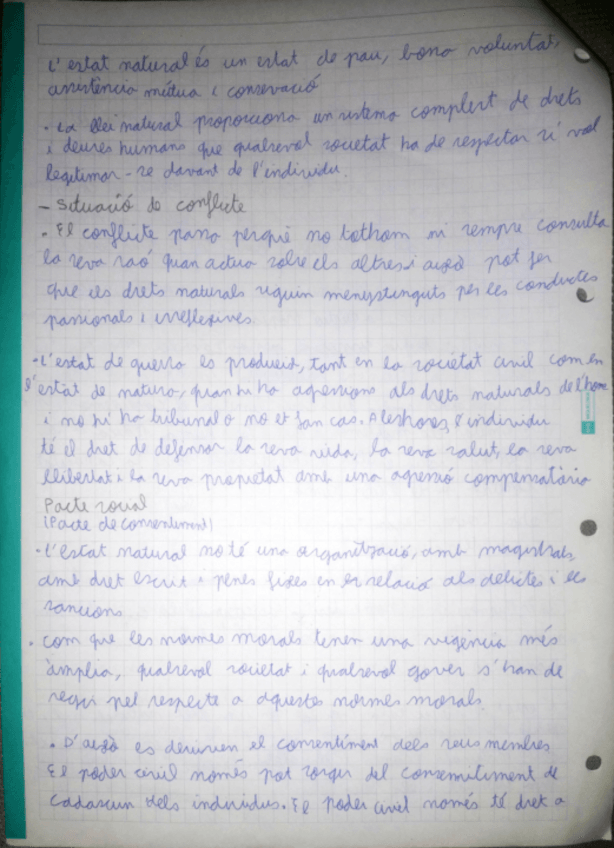 L'estat natural és un estat de pau, bona voluntat,
assistència mútua i conservació
· La llei natural proporciona un sistema complert de drets
i deures humans que qualsevol societat ha de respectar si vol
legitimar-se davant de l'individu.
- Situació de conflicte
· El conflicte passa perquè no tothom ni sempre consulta
la seva raó quan actua sobre els altres i això pot fer
que els drets naturals siguin menystinguts per les conductes
passionals i irreflexives.
· L'estat de guerra es produeix, tant en la societat civil com en
l'estat de natura, quan hi ha agressions als drets naturals de l'home
i no hi ha tribunal o no et fan cas. Aleshores, l'individu
té el dret de defensar la seva vida, la seva salut, la seva
llibertat i la seva propietat amb una agressió compensatòria
Pacte social
(Pacte de consentiment)
· L'estat natural no té una organització, amb magistrats,
amb dret escrit i penes fixes en relació als delictes i les
sancions
· Com que les normes morals tenen una vigència més
àmplia, qualsevol societat i qualsevol gover s'han de
regir pel respecte a aquestes normes morals.
· D'això es deriven el consentiment dels seus membres
El poder civil només pot sorgir del consentiment de
cadascun dels individus. El poder civil només té dret a